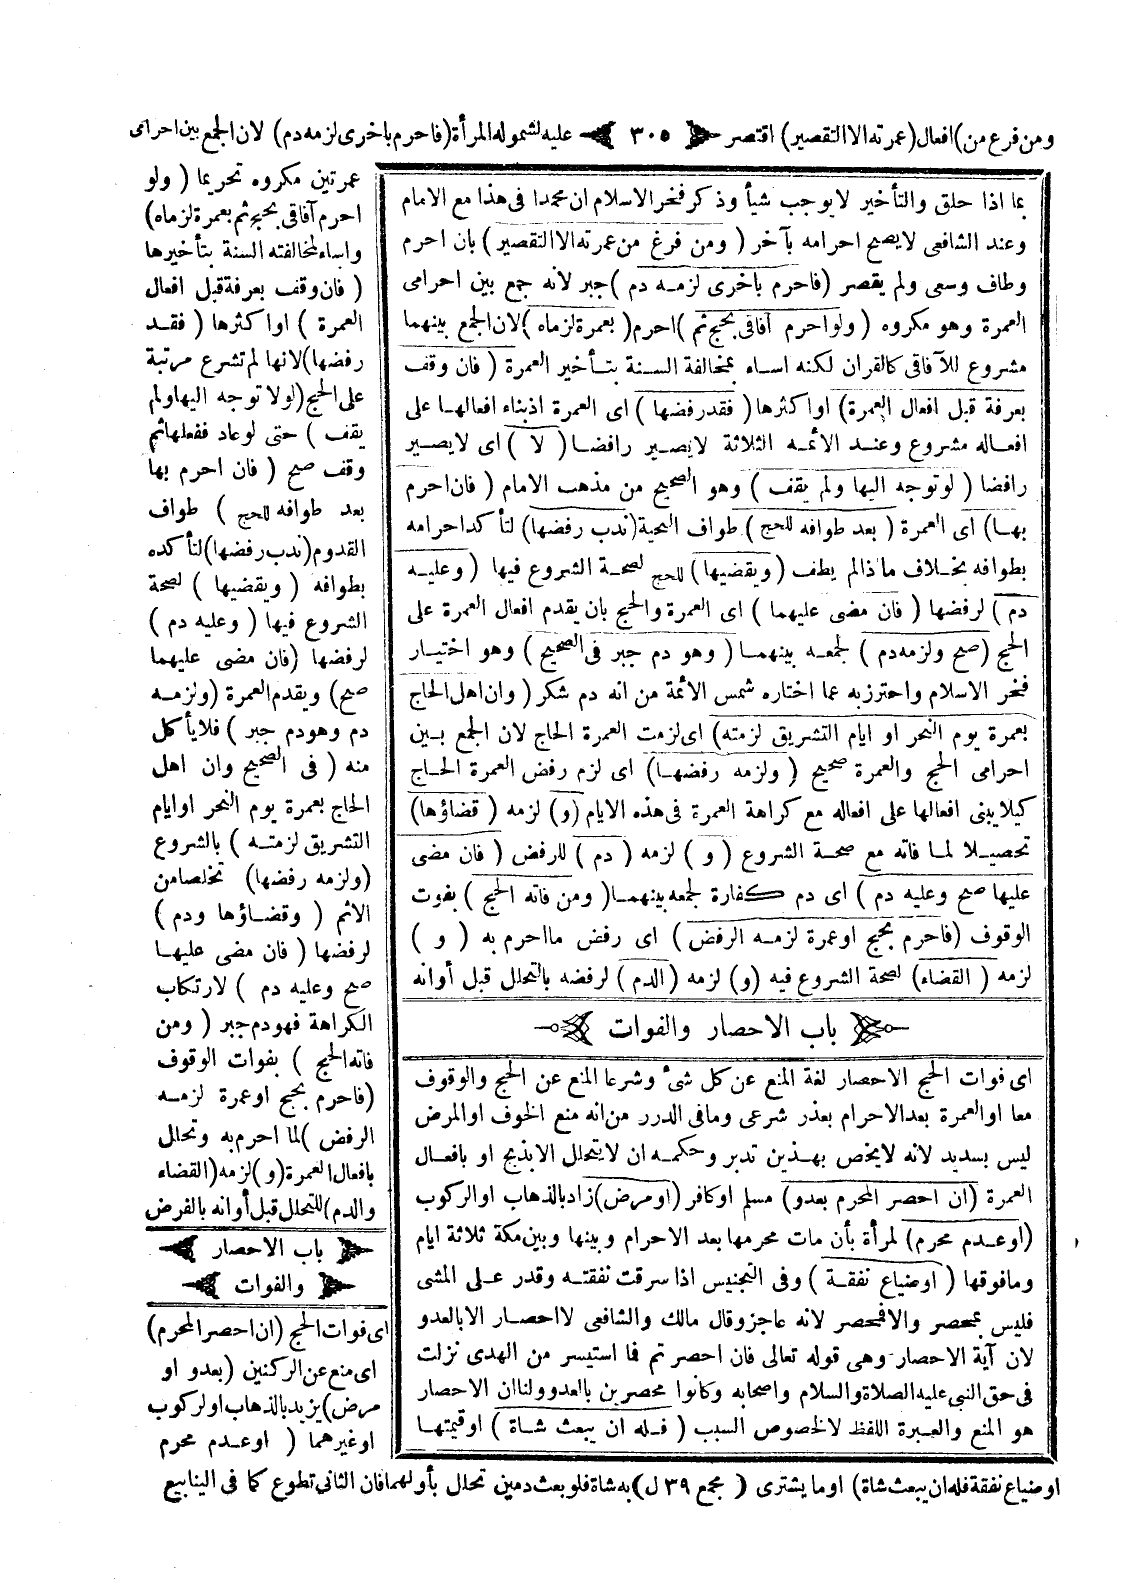 ومن فرغ من) افعال (عمرته الا التقصير) اقتصر ﴿ ٣٠٥ ﴾ عليه لشموله المرأة (فاحرم باخرى لزمه دم) لان الجمع بين احرامى
بما اذا حلق والتأخير لا يوجب شيأ وذكر فخر الاسلام ان محمدا فى هذا مع الامام
وعند الشافعى لا يصح احرامه بآخر ( ومن فرغ من عمرته الا التقصير ) بان احرم
وطاف وسعى ولم يقصر (فاحرم باخرى لزمه دم ) جبر لانه جمع بين احرامى
العمرة وهو مكروه ( ولو احرم آفاقى بحج ثم ) احرم ( بعمرة لزماه ) لان الجمع بينهما
مشروع للآفاقى كالقران لكنه اساء بمخالفة السنة بتأخير العمرة ( فان وقف
بعرفة قبل افعال العمرة) او اكثرها ( فقد رفضها ) اى العمرة اذ بناء افعالها على
افعاله مشروع وعند الأئمه الثلاثة لا يصير رافضا ( لا ) اى لا يصير
رافضا ( لو توجه اليها ولم يقف ) وهو الصحيح من مذهب الامام ( فان احرم
بها) اى العمرة ( بعد طوافه للحج ) طواف التحية (ندب رفضها) لتأكد احرامه
بطوافه بخلاف ما ذا لم يطف ( ويقضيها) للحج لصحة الشروع فيها ( وعليه
دم ) لرفضها ( فان مضى عليهما ) اى العمرة والحج بان يقدم افعال العمرة على
الحج ( صح ولزمه دم ) لجمعه بينهما ( وهو دم جبر فى الصحيح ) وهو اختيار
فخر الاسلام واحترز به عما اختاره شمس الأئمة من انه دم شكر ( وان اهل الحاج
بعمرة يوم النحر او ايام التشريق لزمته) اى لزمت العمرة الحاج لان الجمع بين
احرامى الحج والعمرة صحيح ( ولزمه رفضها) اى لزم رفض العمرة الحاج
كيلا يبنى افعالها على افعاله مع كراهة العمرة فى هذه الايام (و) لزمه ( قضاؤها)
تحصيلا لما فاته مع صحة الشروع ( و ) لزمه ( دم ) للرفض ( فان مضى
عليها صح وعليه دم ) اى دم كفارة لجمعه بينهما ( ومن فاته الحج ) بفوت
الوقوف (فاحرم بحج او عمرة لزمه الرفض ) اى رفض ما احرم به ( و )
لزمه ( القضاء) لصحة الشروع فيه (و) لزمه (الدم ) لرفضه بالتحلل قبل أوانه
باب الاحصار والفوات
اى فوات الحج الاحصار لغة المنع عن كل شىء وشرعا المنع عن الحج والوقوف
معا او العمرة بعد الاحرام بعذر شرعى وما فى الدرر من انه منع الخوف او المرض
ليس بسديد لانه لا يخص بهذين تدبر وحكمه ان لا يتحلل الا بذبح او بافعال
العمرة (ان احصر المحرم بعدو) مسلم او كافر (او مرض) زاد بالذهاب او الركوب
(او عدم محرم) لمرأة بأن مات محرمها بعد الاحرام وبينها وبين مكة ثلاثة ايام
وما فوقها ( او ضياع نفقة ) وفى التجنيس اذا سرقت نفقته وقدر على المشى
فليس بمحصر والا فمحصر لانه عاجز وقال مالك والشافعى لا احصار الا بالعدو
لان آية الاحصار وهى قوله تعالى فان احصر تم فما استيسر من الهدى نزلت
فى حق النبى عليه الصلاة والسلام واصحابه وكانوا محصرين بالعدو ولنا ان الاحصار
هو المنع والعبرة اللفظ لا لخصوص السبب ( فله ان يبعث شاة ) او قيمتها
عمرتين مكروه تحريما ( ولو
احرم آفاقى بحج ثم بعمرة لزماه)
واساء لمخالفته السنة بتأخيرها
( فان وقف بعرفة قبل افعال
العمرة ) او اكثرها ( فقد
رفضها) لانها لم تشرع مرتبة
على الحج (لولا توجه اليها ولم
يقف ) حتى لو عاد ففعلها ثم
وقف صح ( فان احرم بها
بعد طوافه للحج ) طواف
القدوم (ندب رفضها) لتأكده
بطوافه ( ويقضيها ) لصحة
الشروع فيها ( وعليه دم )
لرفضها (فان مضى عليهما
صح) ويقدم العمرة (ولزمه
دم وهو دم جبر ) فلا يأكل
منه ( فى الصحيح وان اهل
الحاج بعمرة يوم النحر او ايام
التشريق لزمته ) بالشروع
(ولزمه رفضها) تخلصا من
الاثم ( وقضاؤها ودم )
لرفضها ( فان مضى عليها
صح وعليه دم ) لارتكاب
الكراهة فهو دم جبر ( ومن
فاته الحج ) بفوات الوقوف
(فاحرم بحج او عمرة لزمه
الرفض ) لما احرم به وتحلل
بافعال العمرة (و) لزمه (القضاء
والدم) للتحلل قبل أوانه بالفرض
باب الاحصار
والفوات
اى فوات الحج (ان احصر المحرم)
اى منع عن الركنين (بعدو او
مرض) يزيد بالذهاب او لركوب
او غيرهما ( او عدم محرم
او ضياع نفقة فله ان يبعث شاة) او ما يشترى ( مجمع ٣٩ ل ) به شاة فلو بعث دمين تحلل بأولهما فان الثانى تطوع كما فى الينابيع